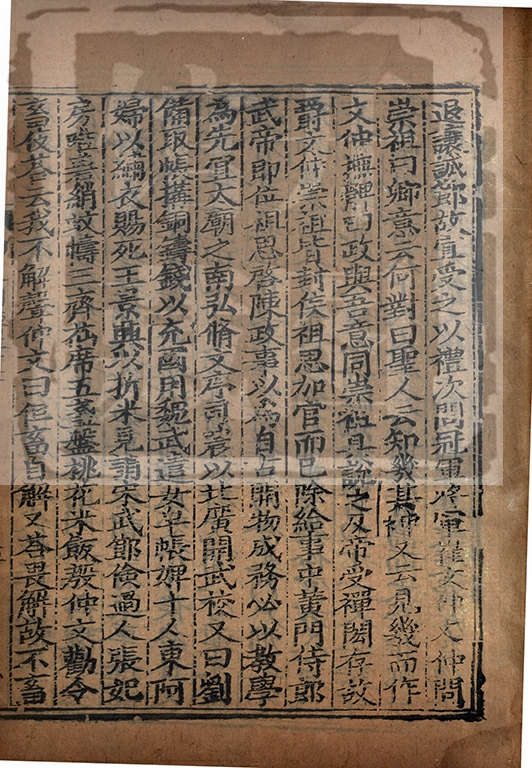 退讓誠節故宜受之以禮次問冠軍將軍崔文仲文仲問
崇祖曰卿意云何對曰聖人云知幾其神又云見幾而作
文仲撫髀曰政與吾意同崇祖具說之及帝受禪闓存故
爵文仲崇祖皆封侯祖思加官而已除給事中黃門侍郎
武帝即位祖思啓陳政事以為自古開物成務必以教學
為先宜太廟之南弘脩文序司農以北廣開武校又曰劉
備取帳構銅鑄錢以充國用魏武遣女皁帳婢十人東阿
婦以繡衣賜死王景興以折米見誚宋武節儉過人張妃
房唯碧綃蚊幬三齊苮席五盞盤桃花米飯殷仲文勸令
畜伎荅云我不解聲仲文曰但畜自解又荅畏解故不畜